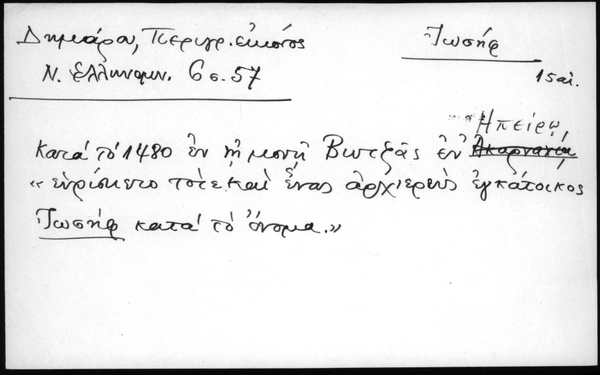 Δημάρα, Περιγρ. εἰκόνος
Ἰωσήφ
Ν. Ἑλληνομν. 6 σ. 57
15 αἰ.
Ἠπείρῳ
Κατὰ τὸ 1480 ἐν τῇ μονῇ Βυτζᾶς ἐν Ἀκαρνανίᾳ,
« εὑρίσκετο τότε καὶ ἕνας ἀρχιερεὺς ἐγκάτοικος
Ἰωσήφ κατὰ τὸ ὄνομα.»